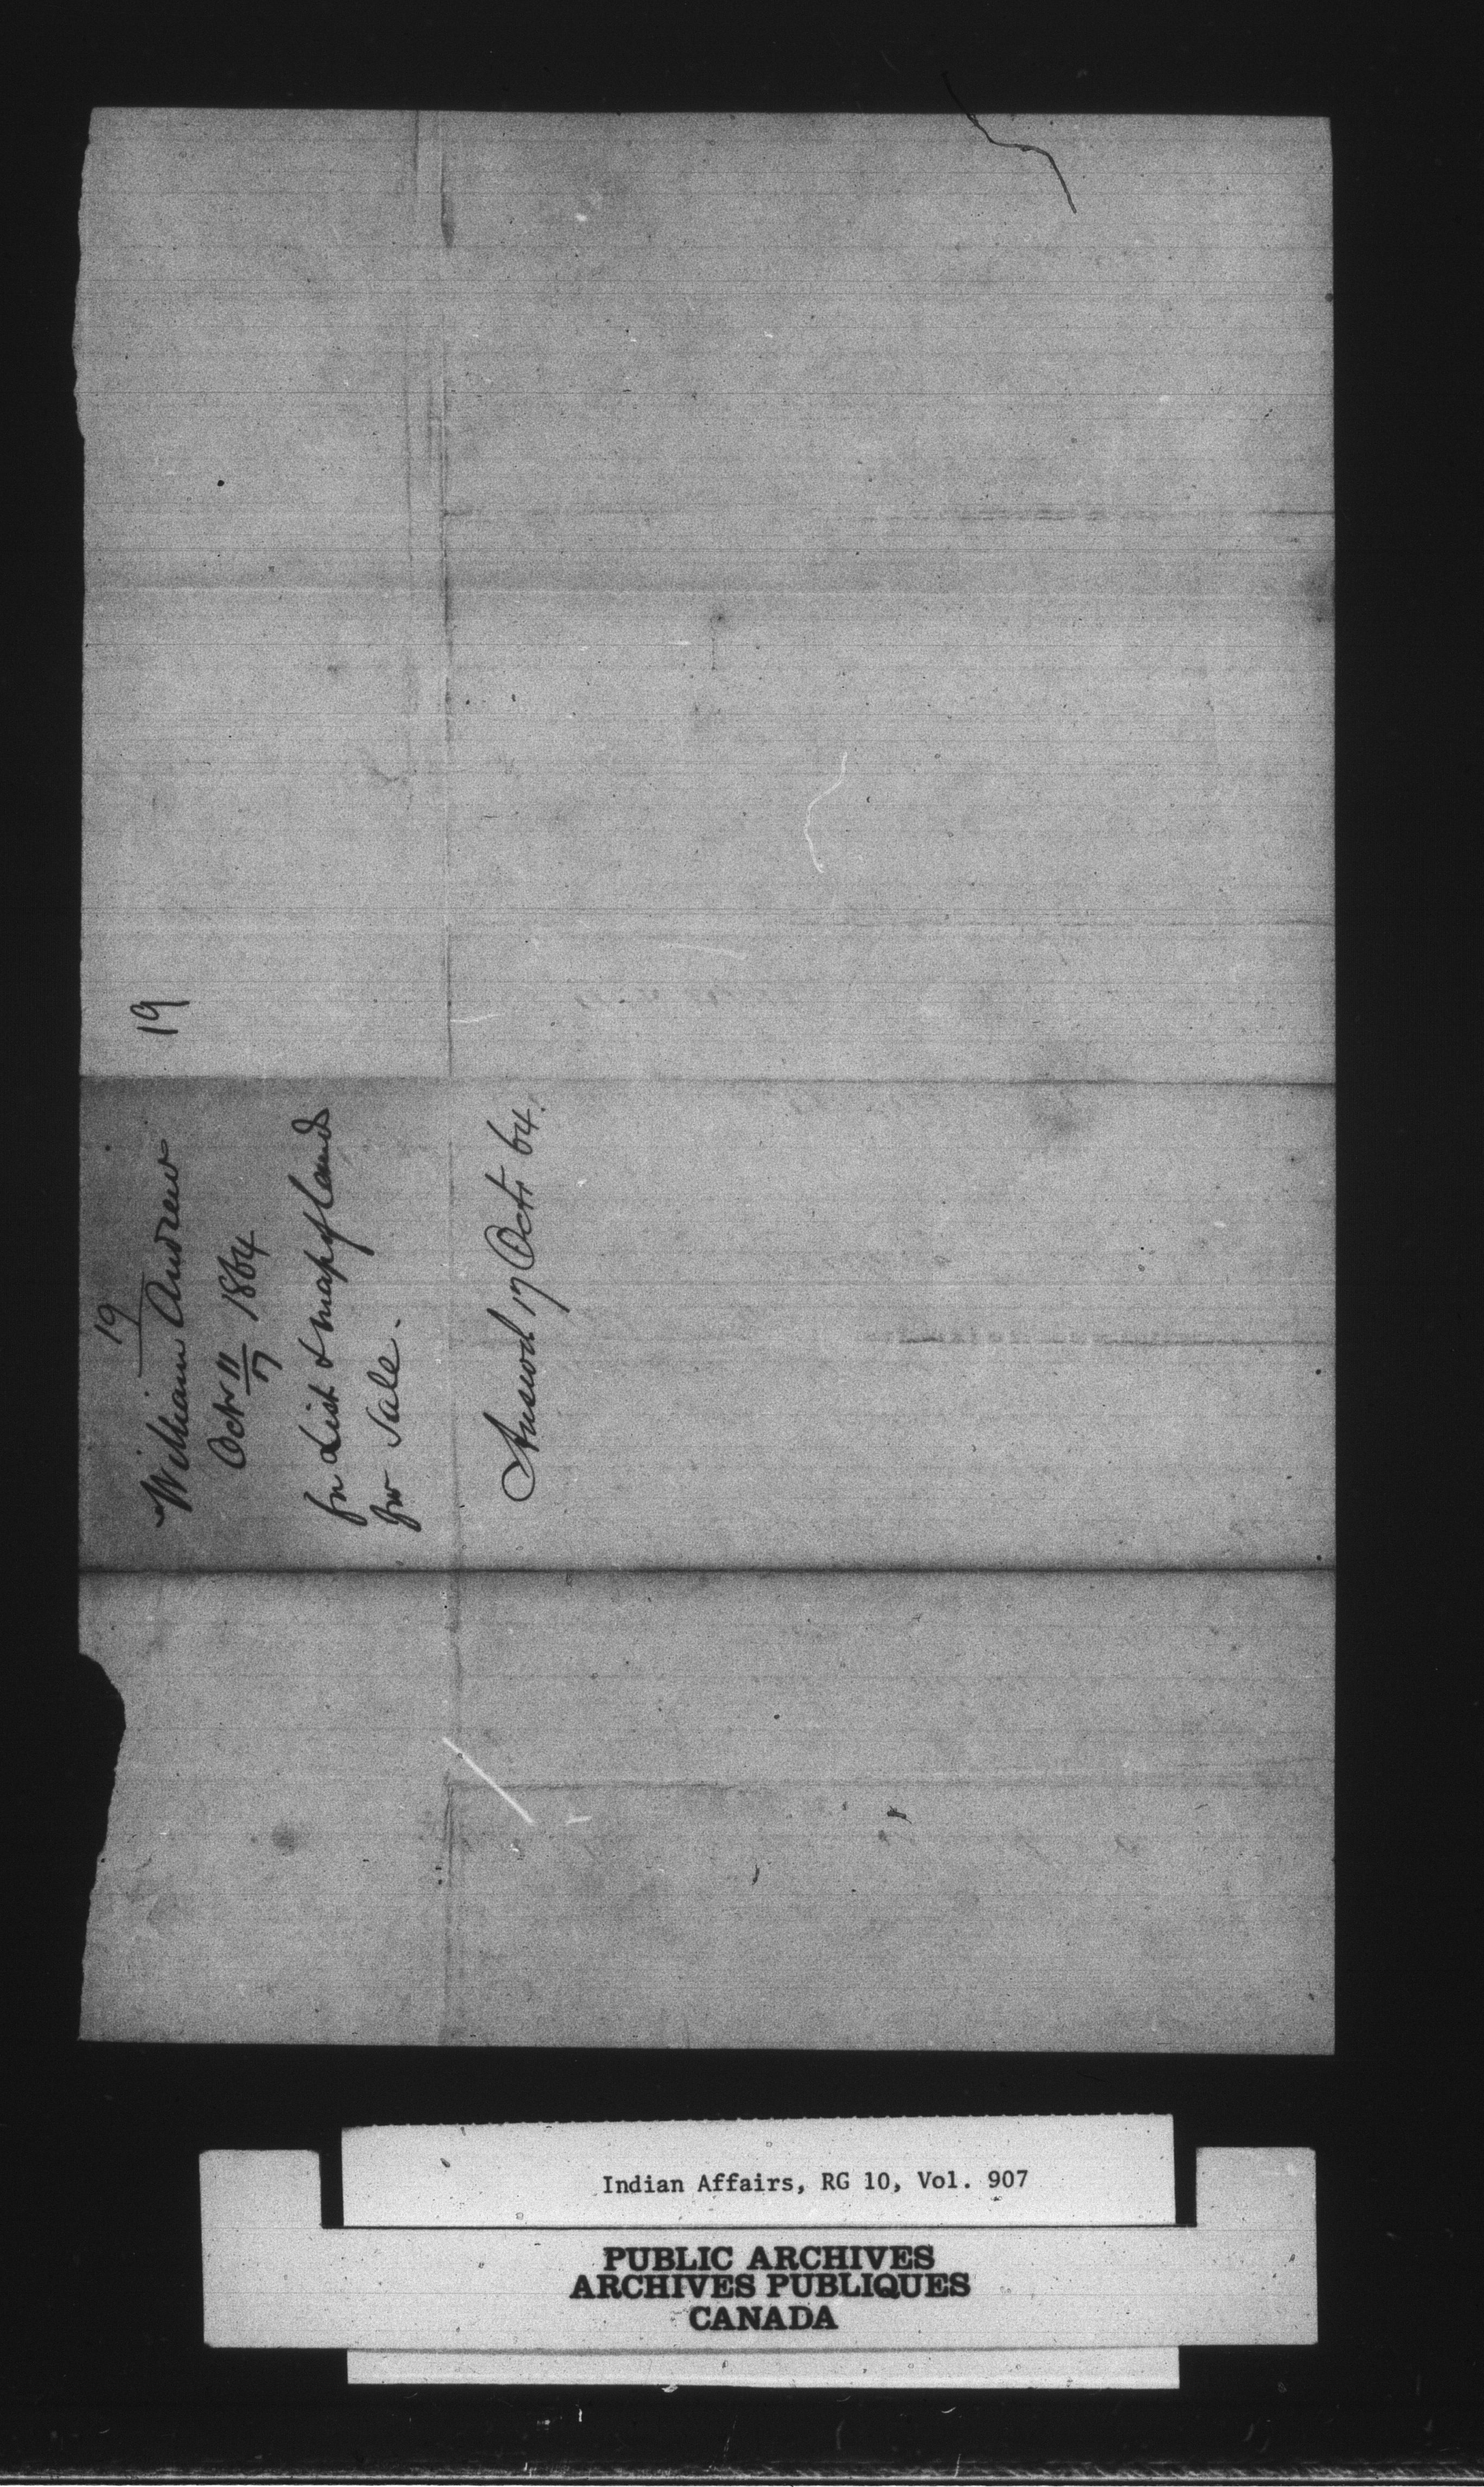 19
19
William Andrew
Octr 11/17 1864
for List & map of lands
for Sale.
Answd 17 Octr 64.
Indian Affairs, RG 10, Vol. 907
PUBLIC ARCHIVES
ARCHIVES PUBLIQUES
CANADA